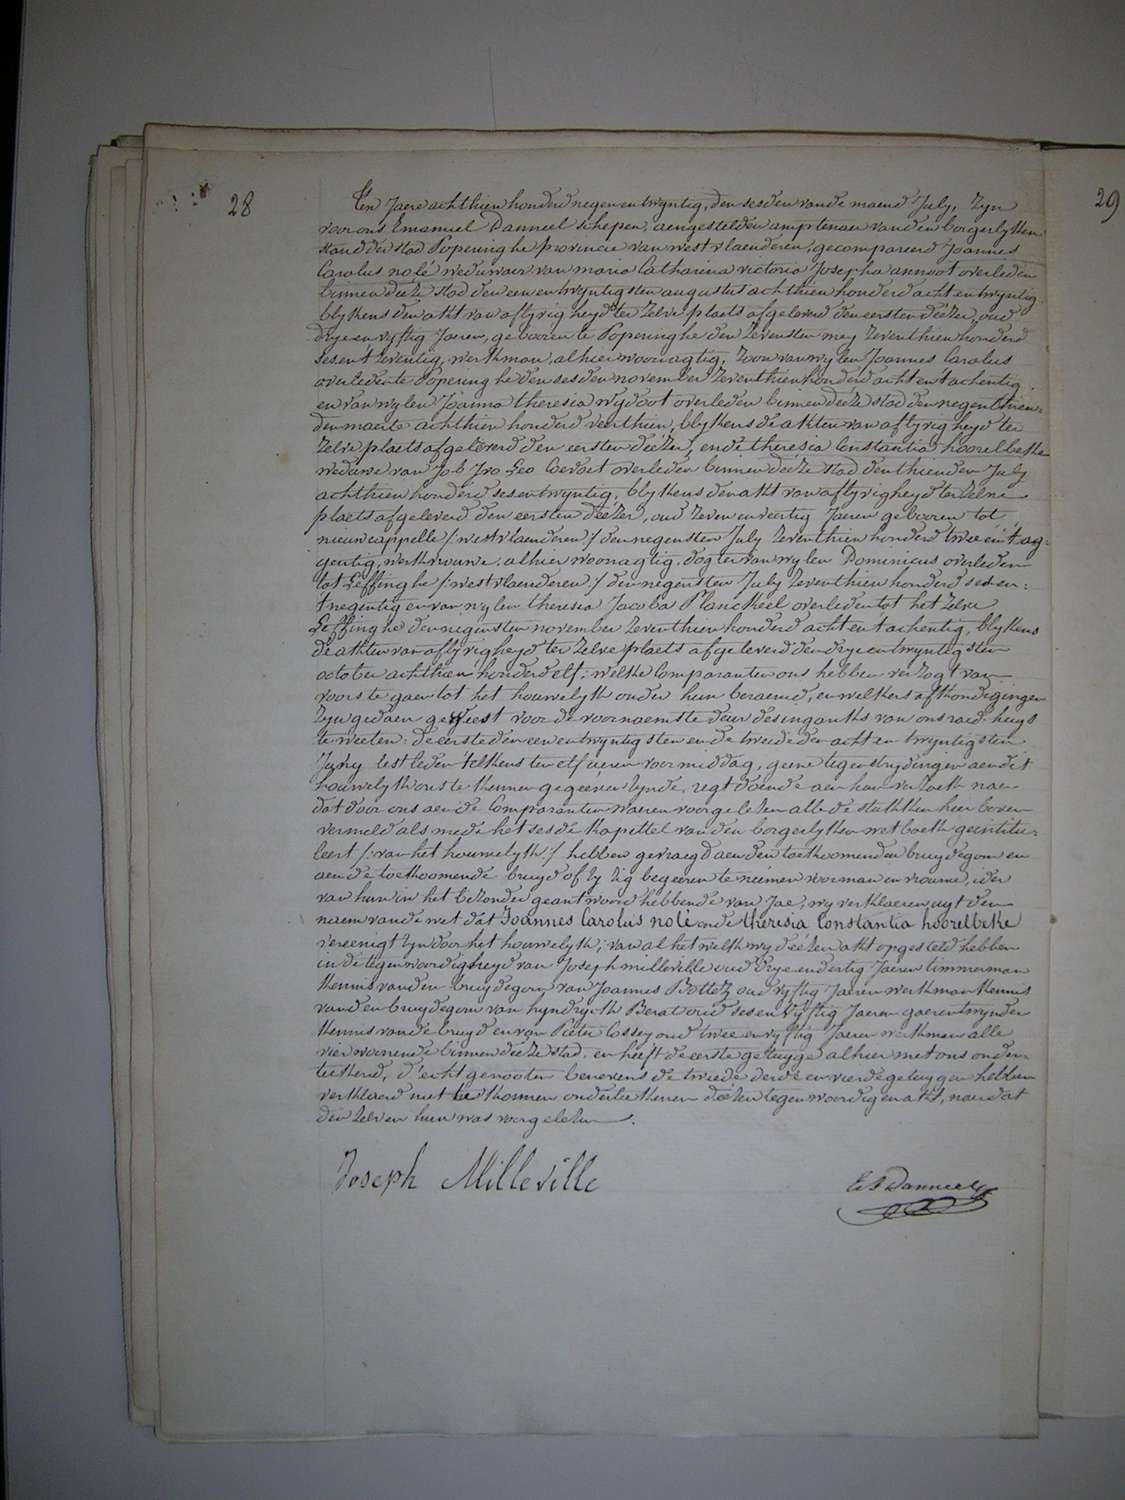 28
29
Ten Jaere achthien honderd negen en twyntig, den sesden van de maend July, Zyn
voor ons Emanuel Danneel schepen, aengestelden amptenaer van den borgerlyken
stand der stad Poperinghe provincie van westvlaenderen, gecompareerd Joannes
Carolus nolé weduwaer van maria Catharina victoria Josepha annoot overleden
binnen deéze stad den een en twyntigsten augustus achthien honderd acht en twyntig
blykens den akt van aflyvigheyd ter zelve plaets afgeleverd den eersten deézer, oud
drye en vyftig Jaeren, gebooren te Poperinghe den zevensten mey zeventhien honderd
ses en t'zeventig, werkman, alhier woonagtig, zoon van wylen Joannes Carolus
overleden te Poperinghe den sesden november zeventhien honderd acht en t'achentig
en van wylen Joanna theresia wydoot overleden binnen deéze stad den negenthien-
den maerte achthien honderd veerthien, blykens de akten van aflyvigheyd ter
zelve plaets afgeleverd den eersten deézer, en de theresia Constantia hoorelbeke
weduwe van Job Ivo Leo Coevoet overleden binnen deéze stad den thienden July
achthien honderd ses en twyntig, blykens den akt van aflyvigheyd ter zelve
plaets afgeleverd den eersten deézer, oud zeven en veertig Jaeren gebooren tot
nieuwcappelle /:westvlaenderen:/ den negensten July zeventhien honderd twee en t'ag-
gentig, werkvrouwe, alhier woonagtig, dogter van wylen Dominicus overleden
tot Leffinghe /:westvlaenderen:/ den negensten July zeventhien honderd ses en
t'negentig en van wylen theresia Jacoba Planckeel overleden tot het zelve
Leffinghe den negensten november zeventhien honderd acht en t'achentig, blykens
de akten van aflyvigheyd ter zelve plaets afgeleverd den drye en twyntigsten
october achthien honderd elf; welke Comparanten ons hebben verzogt van
voorts te gaen tot het houwelyk onder hun beraemd, en welkers afkondegingen
zyn gedaen geweest voor de voornaemste deur des ingangs van ons raed-huys
te weeten: de eerste den een en twyntigsten en de tweede den acht en twyntigsten
Juny lestleden t'elkens ten elf ueren voormiddag, geene tegenstrydingen aen dit
houwelyk ons te kennen gegeéven zynde, regt doende aen hun verzoek naer
dat door ons aen de Comparanten waeren voorgelezen alle de stukken hier boven
vermeld als mede het sesde kapittel van den borgerlyken wetboek geintitu-
leert /:van het houwelyk:/ hebben gevraegd aen den toekoomenden bruydegom en
aen de toekoomende bruyd of zy zig begeeren te neémen voor man en vrouwe, ider
van hun in het bezonder geantwoord hebbende van Jae, wy verklaeren uyt den
naem van de wet dat Joannes Carolus nolé en de theresia Constantia hoorelbeke
vereenigt zyn door het houwelyk; van al het welk wy deézen akt opgesteld hebben
in de tegenwoordigheyd van Joseph milleville oud drye en dertig Jaeren timmerman
kennis van den bruydegom, van Joannes Bottez oud vyftig Jaeren werkman kennis
van den bruydegom van hyndryk Berat oud ses en vyftig Jaeren gaerentwynder
kennis van de bruyd en van Pieter Cossey oud twee en vyftig Jaeren werkman alle
vier woonende binnen deéze stad, en heéft de eerste getuyge alhier met ons onder-
teekend, d'echtgenooten benevens de tweede derde en vierde getuygen hebben
verklaerd niet te konnen onderteekenen deézen tegenwoordigen akt, naer dat
den zelven hun was voorgelezen.
Joseph Milleville
E. J. Danneel